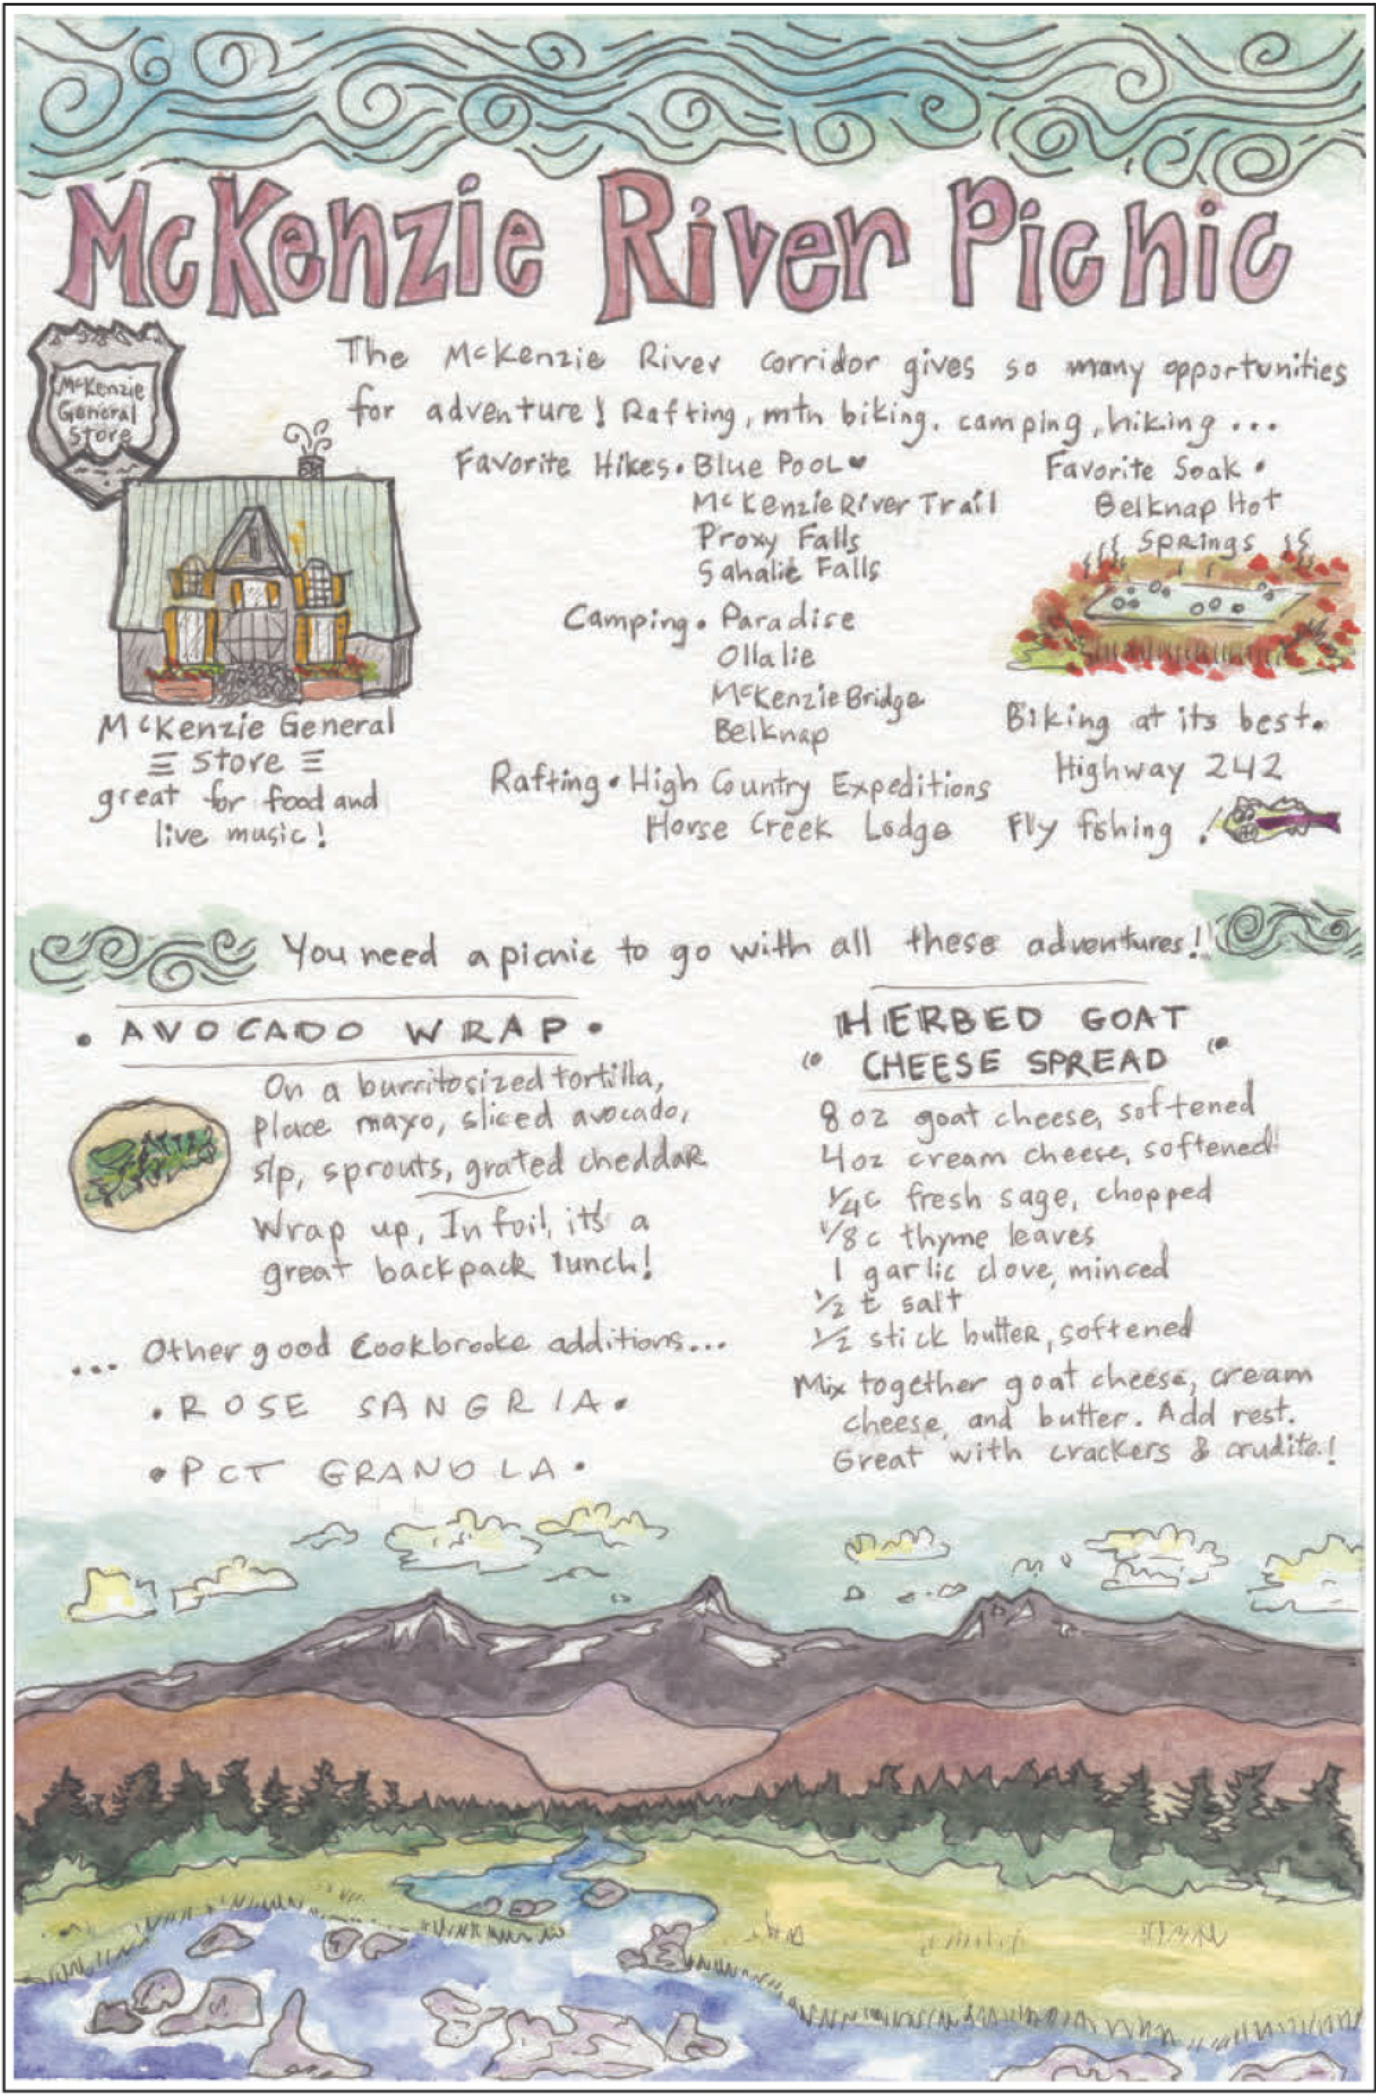 McKenzie River Picnic
McKenzie
General
Store
The McKenzie River corridor gives so many opportunities
for adventure! Rafting, mtn biking, camping, hiking ...
Favorite Hikes • Blue Pool ♥
McKenzie River Trail
Proxy Falls
Sahalie Falls
Favorite Soak •
Belknap Hot
Springs
Camping • Paradise
Ollalie
McKenzie Bridge
Belknap
McKenzie General
Store
great for food and
live music!
Rafting • High Country Expeditions
Horse Creek Lodge
Biking at its best.
Highway 242
Fly fishing!
You need a picnic to go with all these adventures!!
• AVOCADO WRAP •
On a burritosized tortilla,
place mayo, sliced avocado,
s/p, sprouts, grated cheddar
Wrap up, In foil, it's a
great backpack lunch!
... Other good Cookbrooke additions...
• ROSE SANGRIA •
• PCT GRANOLA •
HERBED GOAT
CHEESE SPREAD
8 oz goat cheese, softened
4 oz cream cheese, softened
1/4 c fresh sage, chopped
1/8 c thyme leaves
1 garlic clove, minced
1/2 t salt
1/2 stick butter, softened
Mix together goat cheese, cream
cheese, and butter. Add rest.
Great with crackers & crudite!